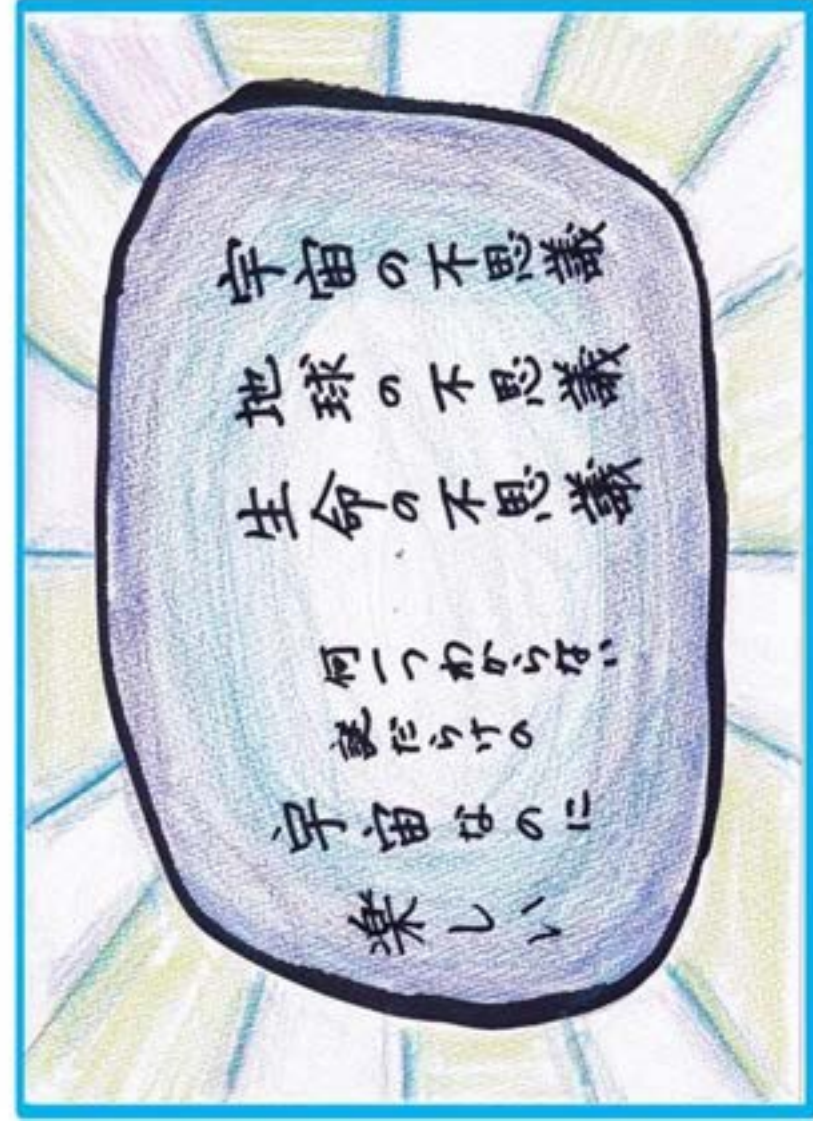 宇宙の不思議
地球の不思議
生命の不思議
何一つわからない
謎だらけの
宇宙なのに
楽しい